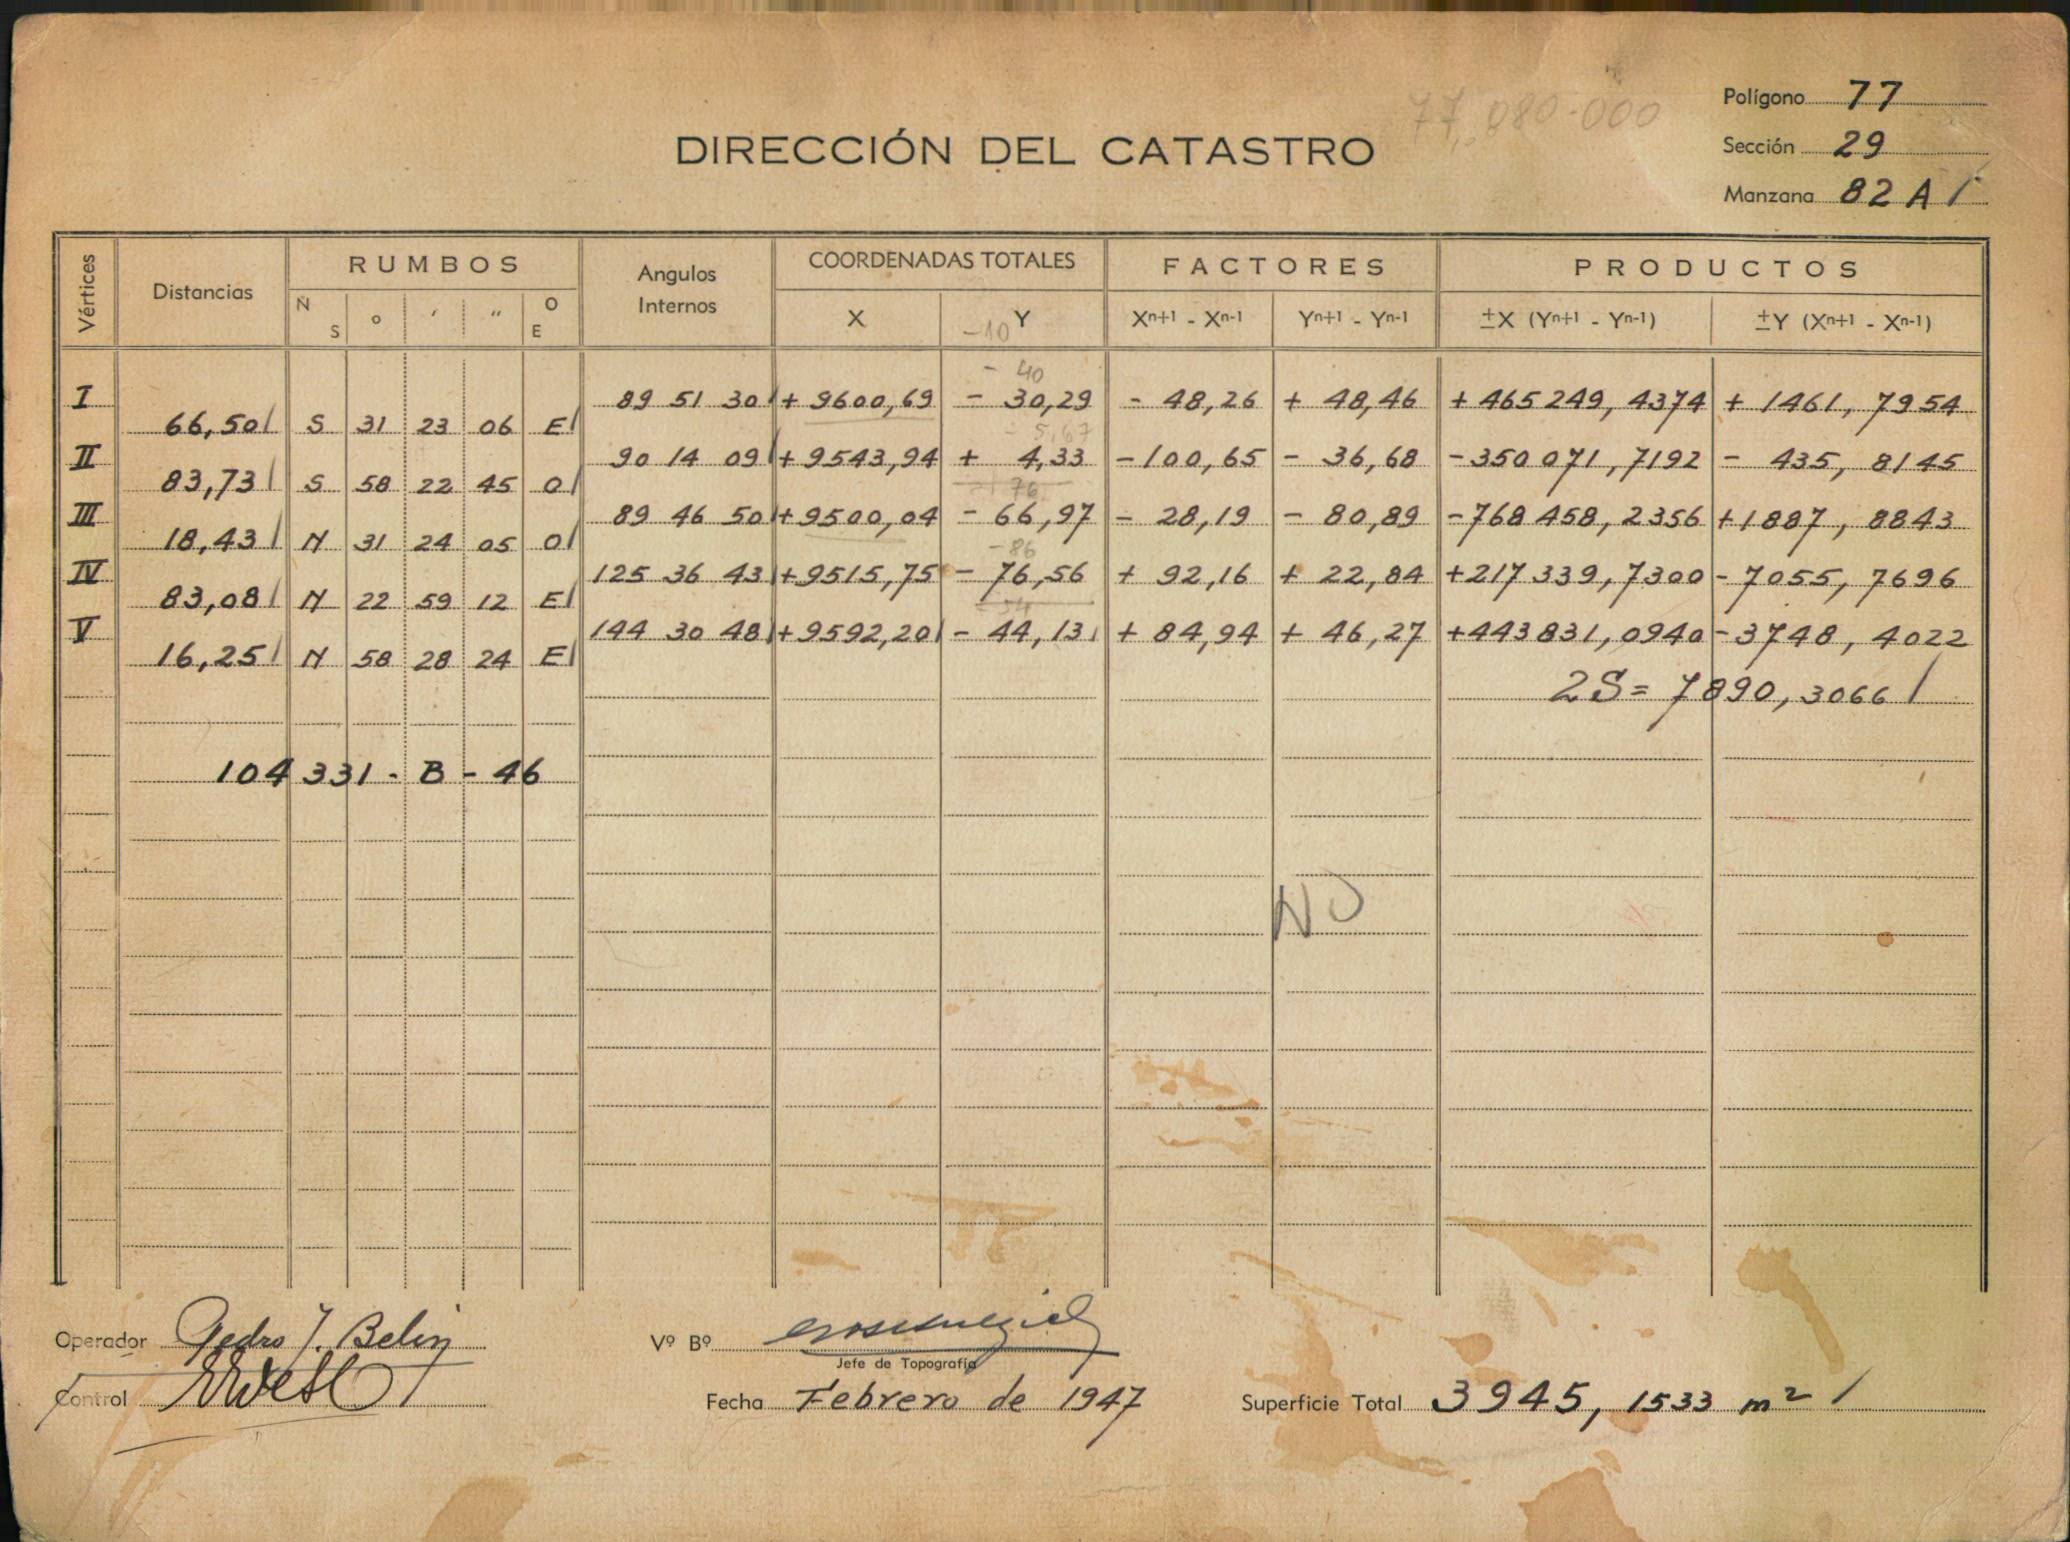 77,080-000
Polígono 77
DIRECCIÓN DEL CATASTRO
Sección 29
Manzana 82 A /
Vértices Distancias RUMBOS Angulos Internos COORDENADAS TOTALES FACTORES PRODUCTOS
N S ° ′ ″ O E X Y Xn+1 - Xn-1 Yn+1 - Yn-1 ±X (Yn+1 - Yn-1) ±Y (Xn+1 - Xn-1)
-10
- 40
I 89 51 30 + 9600,69 - 30,29 - 48,26 + 48,46 + 465 249, 4374 + 1461, 7954
66,50 S 31 23 06 E
- 5,67
II 90 14 09 + 9543,94 + 4,33 - 100,65 - 36,68 - 350 071, 7192 - 435, 8145
83,73 S 58 22 45 O
76
III 89 46 50 + 9500,04 - 66,97 - 28,19 - 80,89 - 768 458, 2356 + 1887, 8843
18,43 N 31 24 05 O
-86
IV 125 36 43 + 9515,75 - 76,56 + 92,16 + 22,84 + 217 339, 7300 - 7055, 7696
83,08 N 22 59 12 E
54
V 144 30 48 + 9592,20 - 44,13 + 84,94 + 46,27 + 443 831, 0940 - 3748, 4022
16,25 N 58 28 24 E
2S = 7890, 3066 /
104 331 - B - 46
NO
Operador Pedro J. Belin
Vº Bº
Jefe de Topografía
Control
Fecha Febrero de 1947
Superficie Total 3945, 1533 m² /